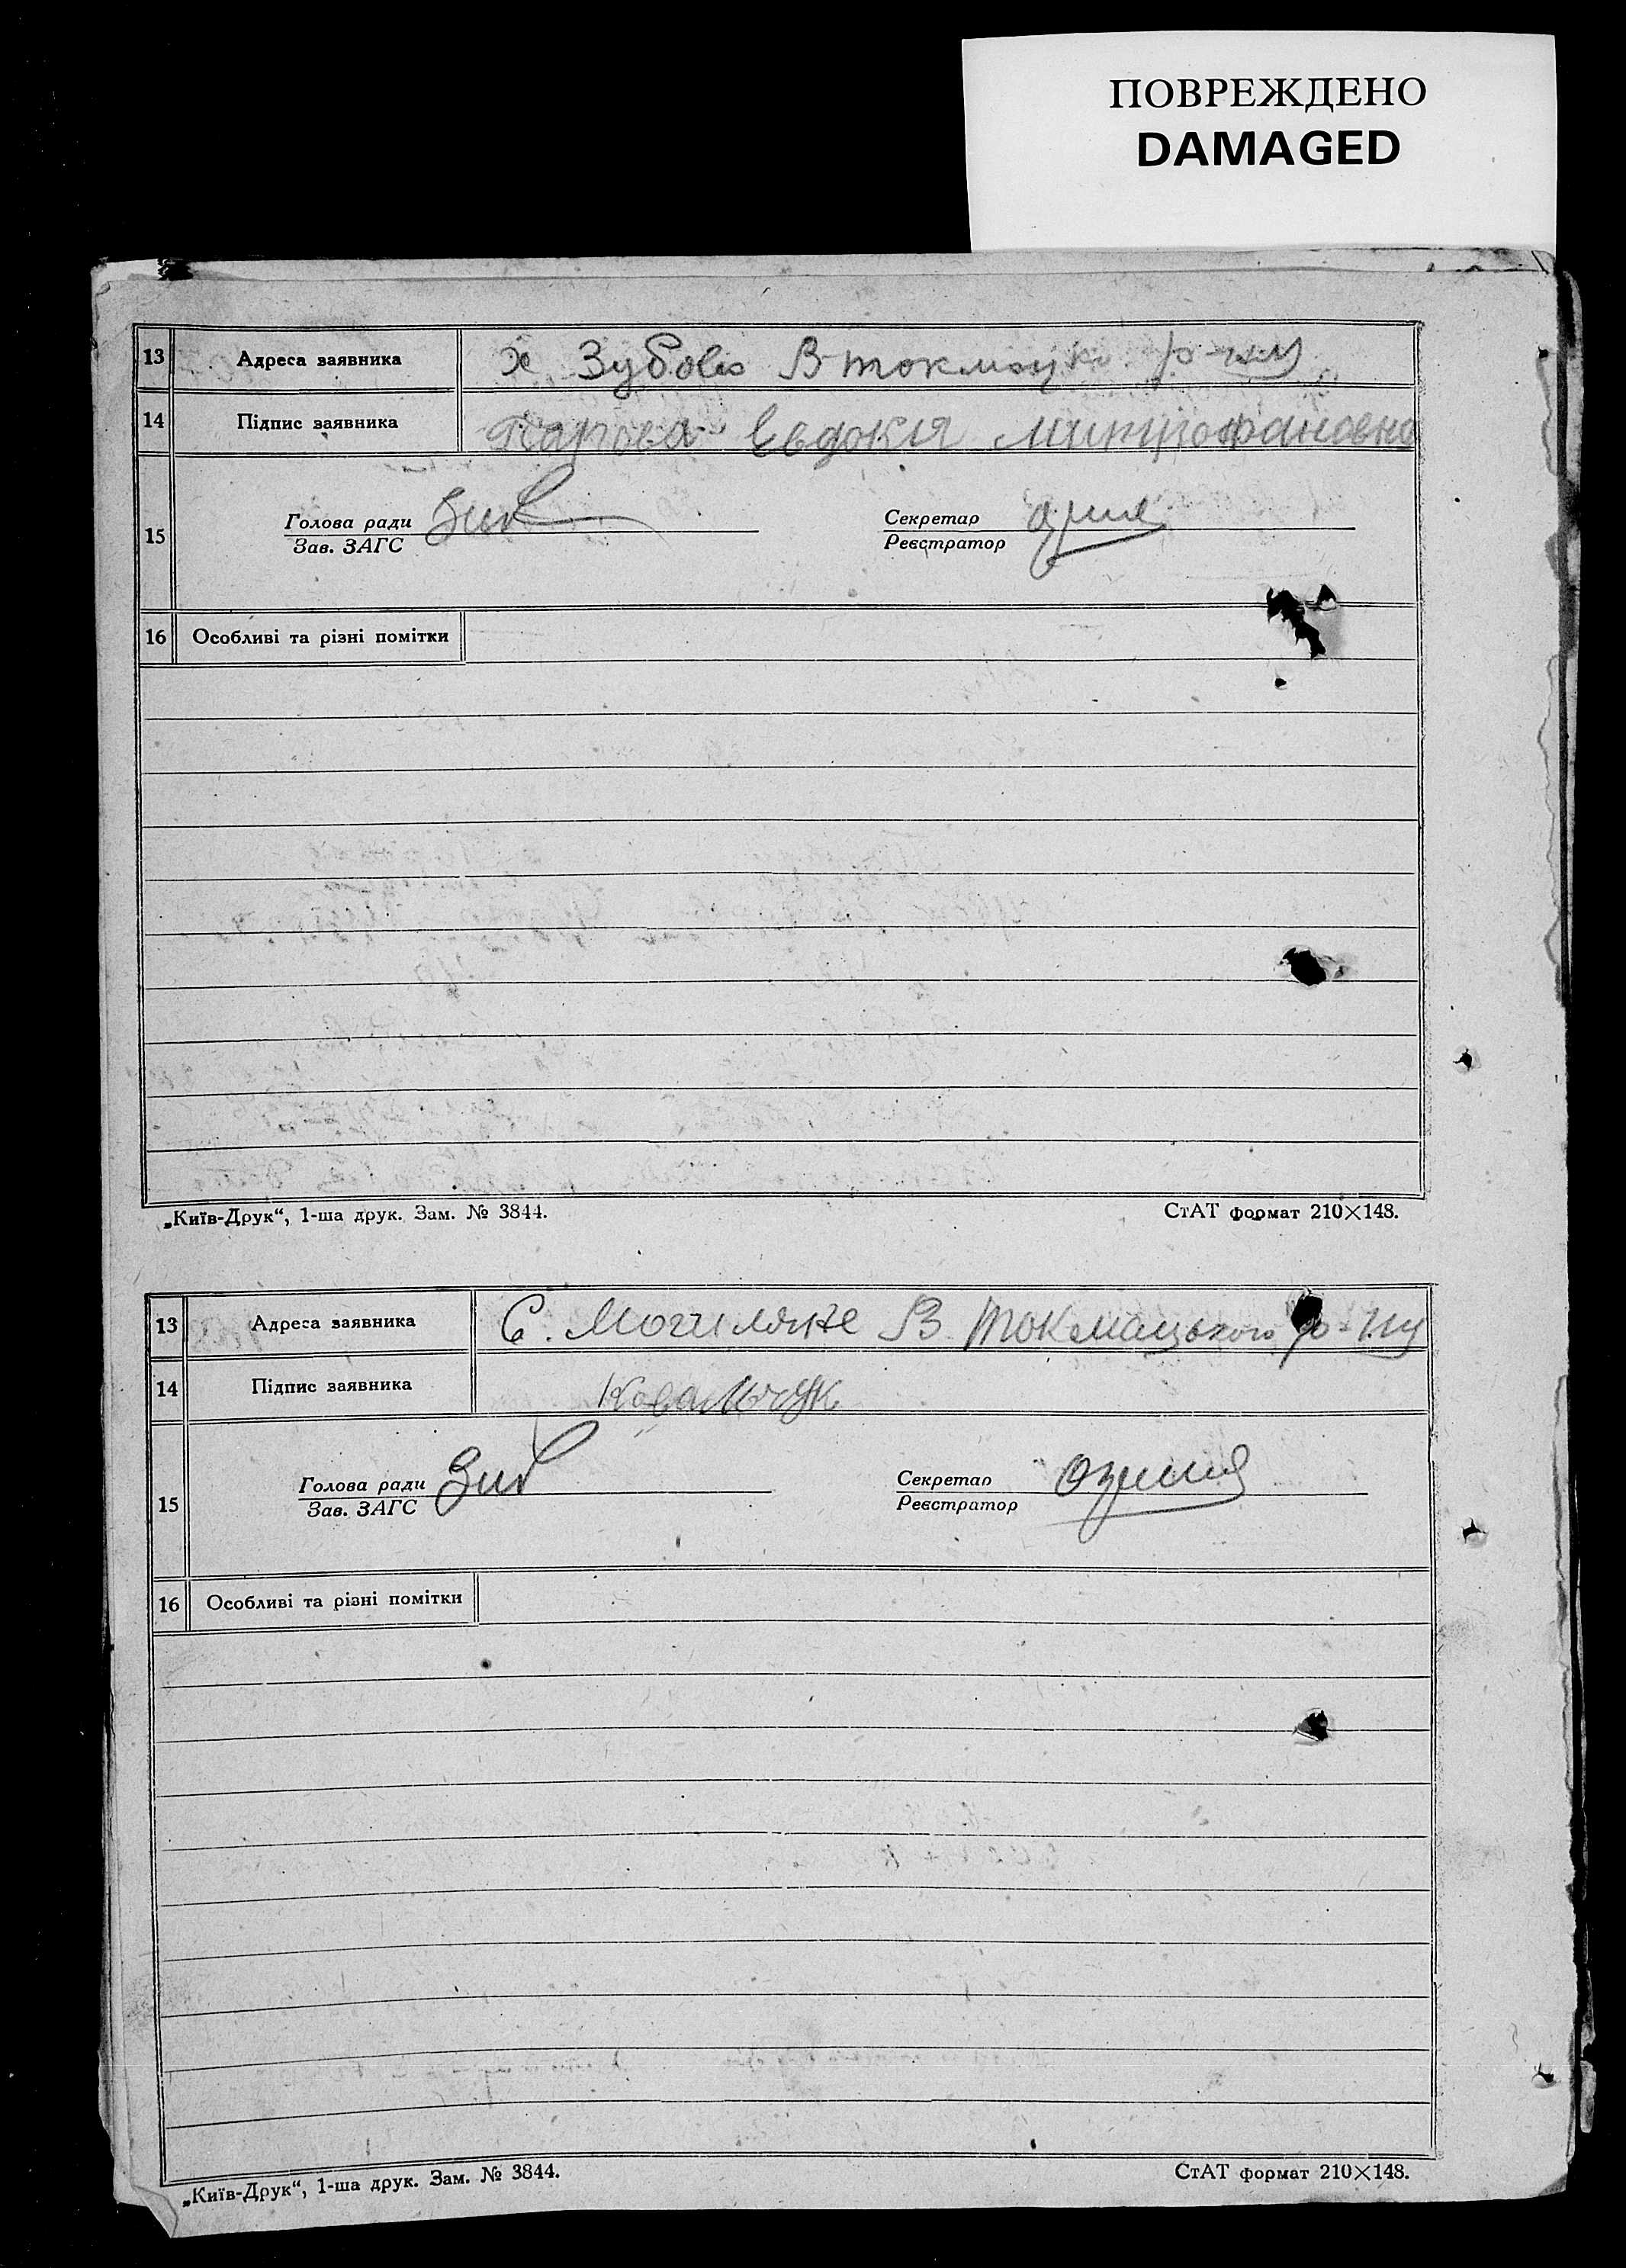 ПОВРЕЖДЕНО
DAMAGED
13 Адреса заявника х Зубово В-токмацько р-ну
14 Підпис заявника Евдокия Митрофановна
15 Голова ради Секретар
Зав. ЗАГС Реєстратор
16 Особливі та різні помітки
„Київ-Друк“, 1-ша друк. Зам. № 3844. СтАТ формат 210×148.
13 Адреса заявника С. Могиляне В. Токмацького р-ну
14 Підпис заявника Ковальчук
15 Голова ради Секретар
Зав. ЗАГС Реєстратор
16 Особливі та різні помітки
„Київ-Друк“, 1-ша друк. Зам. № 3844. СтАТ формат 210×148.